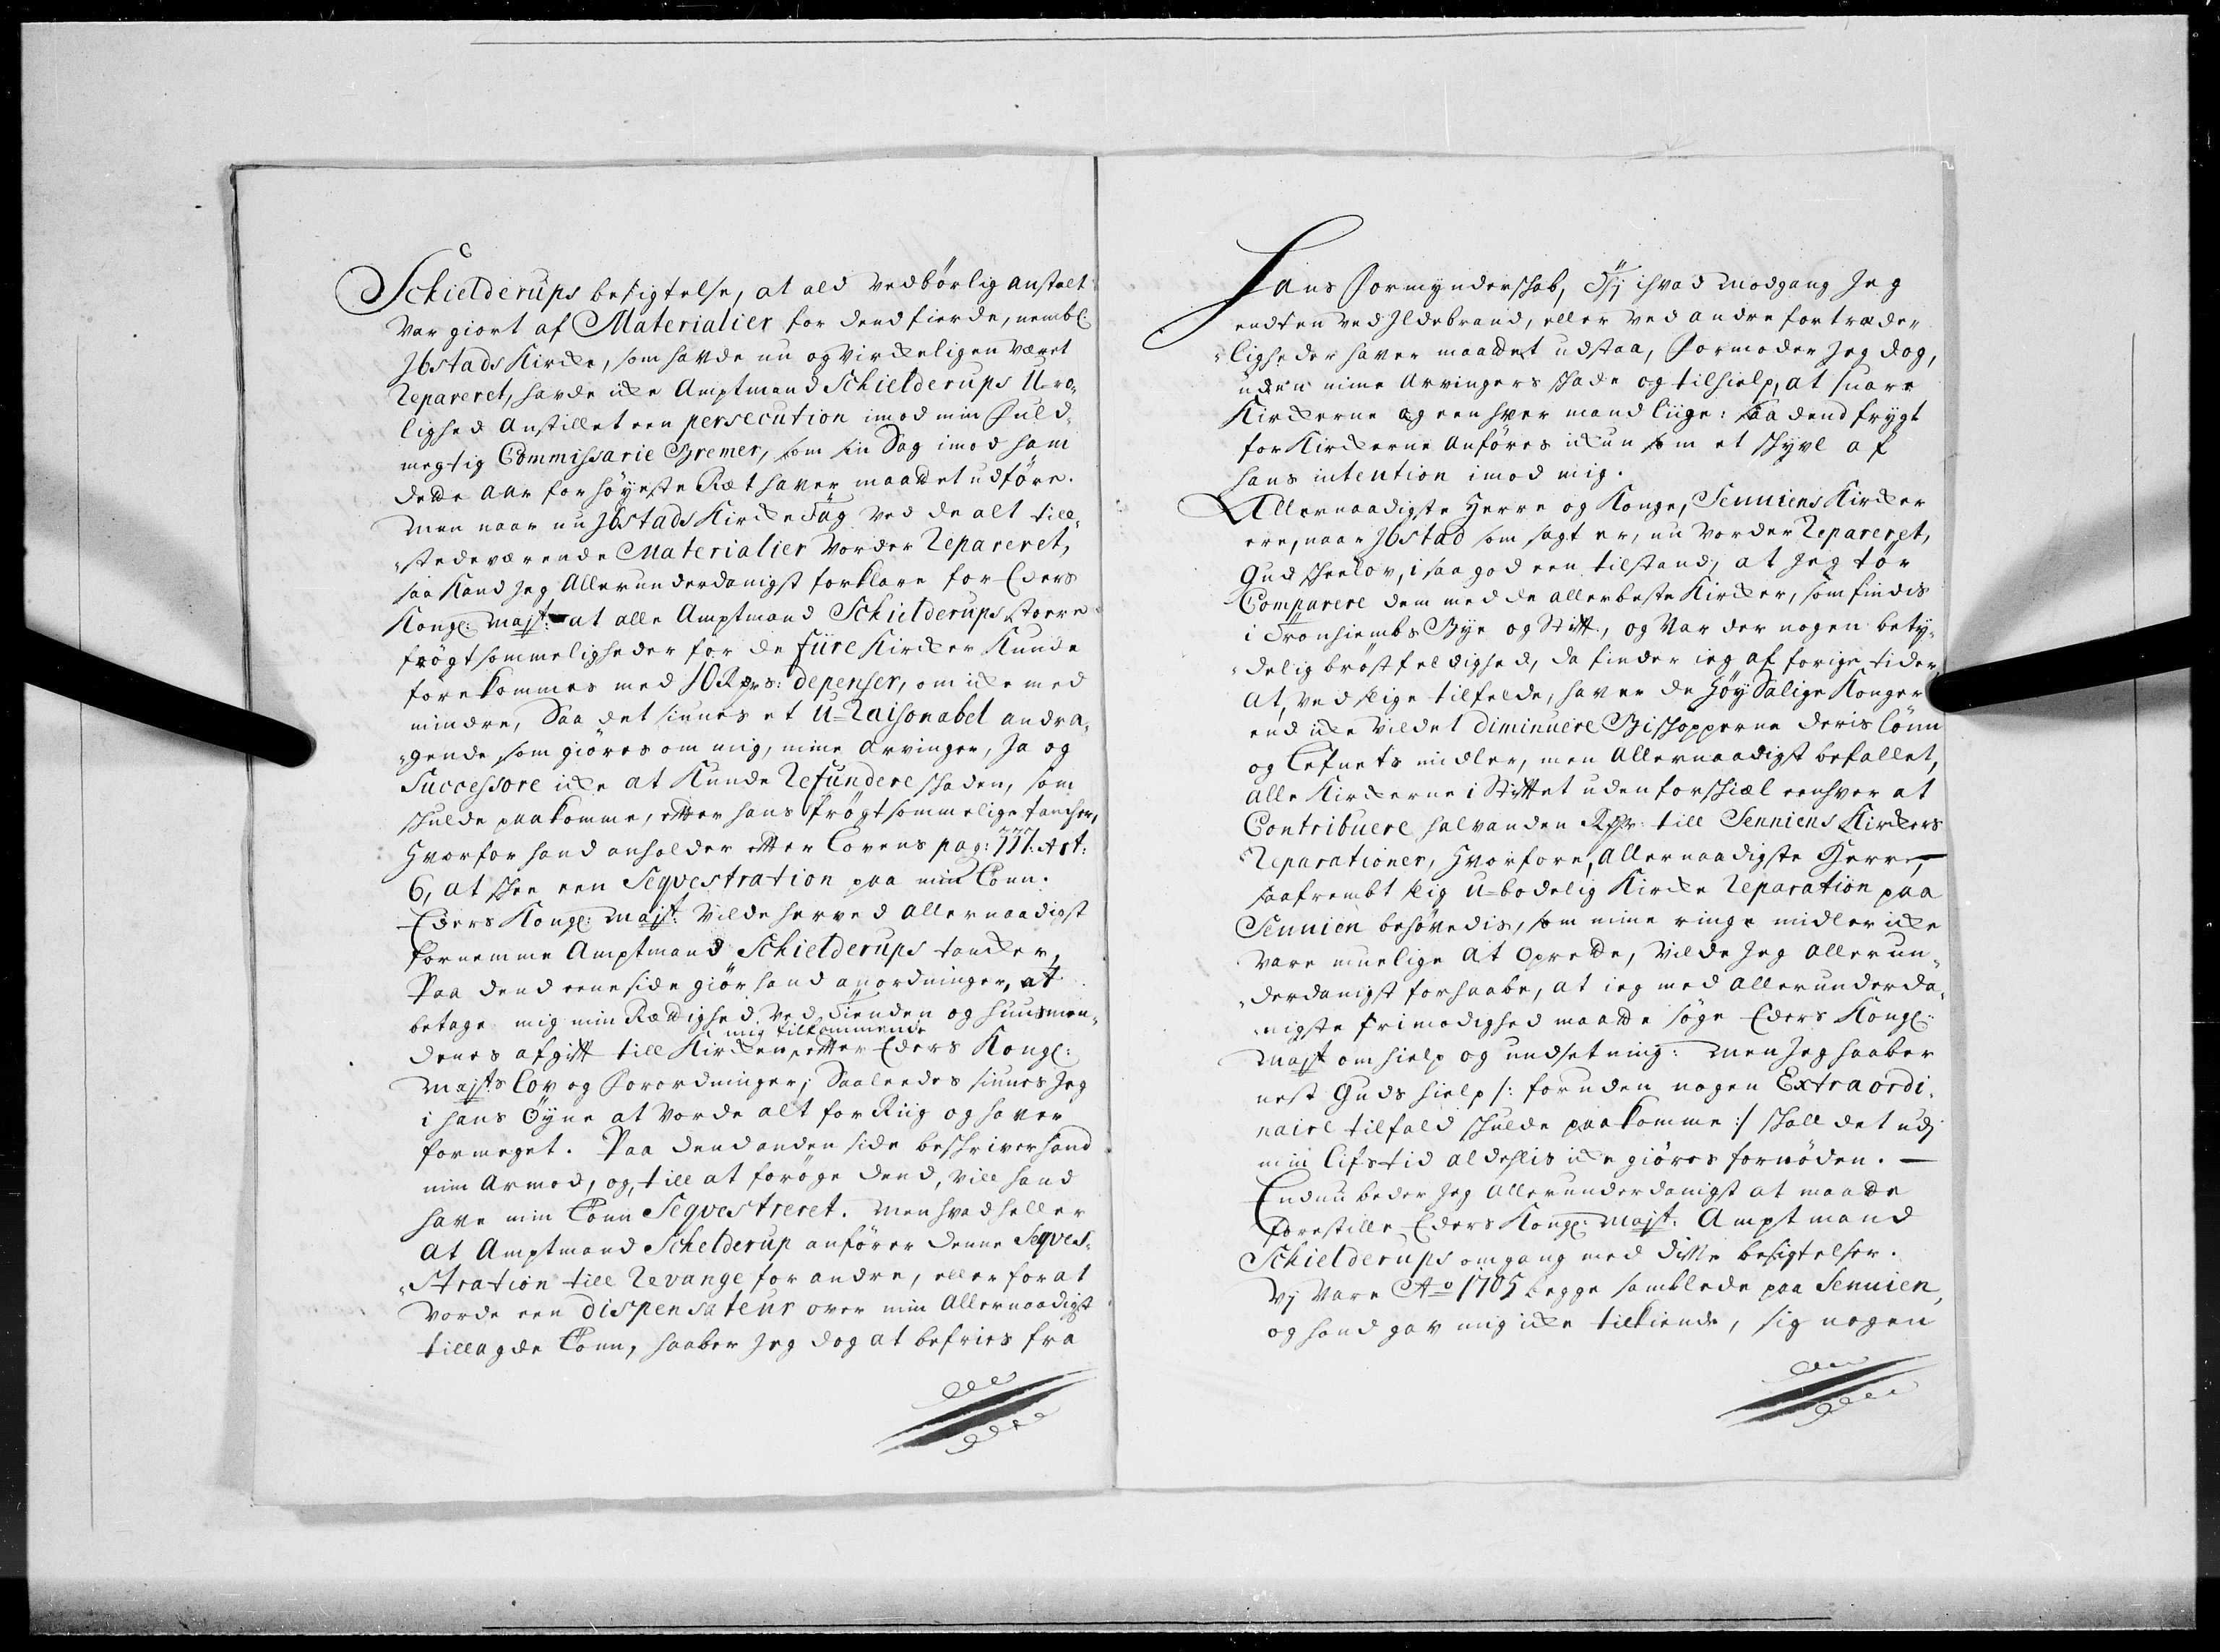 Schielderups besigtelse, at ald vedbörlig anstalt
var giort af Materialier for dend fierde, nembl:
Ibstads Kircke, som hafde nu og virckeligen været
Repareret, hafde icke Amptmand Schielderups U-ro-
lighed anstillet een persecution imod min Fuld-
megtig Commissarie Bremer, som sin Sag imod ham
dette Aar for höyeste Ræt haver maattet udföre.
Men naar nu Ibstads Kircke Tag ved de alt till-
stedeværende Materialier vorder Repareret,
saa Kand Jeg Allerunderdanigst forklare for Eders
Kongl: Mayt: at alle Amptmand Schielderups störe
frögtsommeligheder for de fiire Kircker Kunde
forekommes med 10 Rdrs: depenser, om icke med
mindre, Saa det siunes et U-Raisonabel andra-
gende, som giöres om mig, mine Arvinger, Ja og
Successore icke at Kunde Refundere skaden, som
skulde paakomme, etter hans frögtsommelige tancher,
Hvorfor hand anholder etter Lovens pag: 777. Art:
6, at skee een Seqvestration paa min Lönn.
Eders Kongl: Mayt: vilde herved allernaadigst
fornemme Amptmand Schielderups tancker,
Paa dend eene side giör hand anordninger, at
betage mig min Rættighed ved Tienden og huusmæn-
mig tilkommende
denes afgift till Kircken, etter Eders Kongl:
Mayts Lov og Forordninger; Saaleedes siunes Jeg
i hans Öyne at vorde alt for Riig og haver
formeget. Paa dend anden side beskriver hand
min Armod, og, till at foröge dend, vill hand
have min Lönn Seqvestreret. Men hvad heller
at Amptmand Schelderup anförer denne Seqves-
stration till Revange for andre, eller for at
vorde een dispensateur over min Allernaadigst
tillagde Lönn, haaber Jeg dog at befries fra
Hans Formynderskab, Thi i hvad Modgang Jeg
endten ved Ildebrand, eller ved andre fortræde-
ligheder haver maattet udstaa, Formoder Jeg dog,
uden mine Arvingers skade og tilhielp, at svare
Kirckerne og een hver mand liige: saa dend frygt
for Kirckerne anföres ickun som et skyul af
hans intention imod mig.
Allernaadigste Herre og Konge, Senniens Kircker
ere, naar Ibstad som sagt er, nu vorder Repareret,
Gud skee Lov, i saa god een tilstand, at Jeg tör
Comparere dem med de allerbeste Kircker, som findis
i Tronhiembs Bye og Stift, og var der nogen bety-
delig bröstfeldighed, da finder jeg af forige tider,
at, ved slige tilfelde, haver de Höy Salige Konger
end icke vildet diminuere Biskopperne deris Lönn
og Lefnets midler, men Allernaadigst befallet,
alle Kirckerne i Stiftet uden forskiæl eenhver at
Contribuere halvanden Rdr: till Senniens Kirckers
Reparationer, Hvorfore, Allernaadigste Herre,
saafrembt slig U-bodelig Kircke Reparation paa
Sennien behövedis, som mine ringe midler icke
vare muelige at oprette, vilde Jeg allerun-
derdanigst forhaabe, at jeg med allerunderda-
nigste frimodighed maatte söge Eders Kongl:
Mayt om hielp og undsetning: Men Jeg haaber
nest Guds hielp /: foruden nogen Extraordi-
naire tilfald skulde paakomme :/ skall det udj
min Lifstid aldehlis icke giöres fornöden.
Endnu beder Jeg allerunderdanigst at maatte
forestille Eders Kongl: Mayt: Amptmand
Schielderups omgang med ditte besigtelser.
Vj vare Ao 1705 begge samblede paa Sennien,
og hand gav mig icke tilkiende, sig nogen